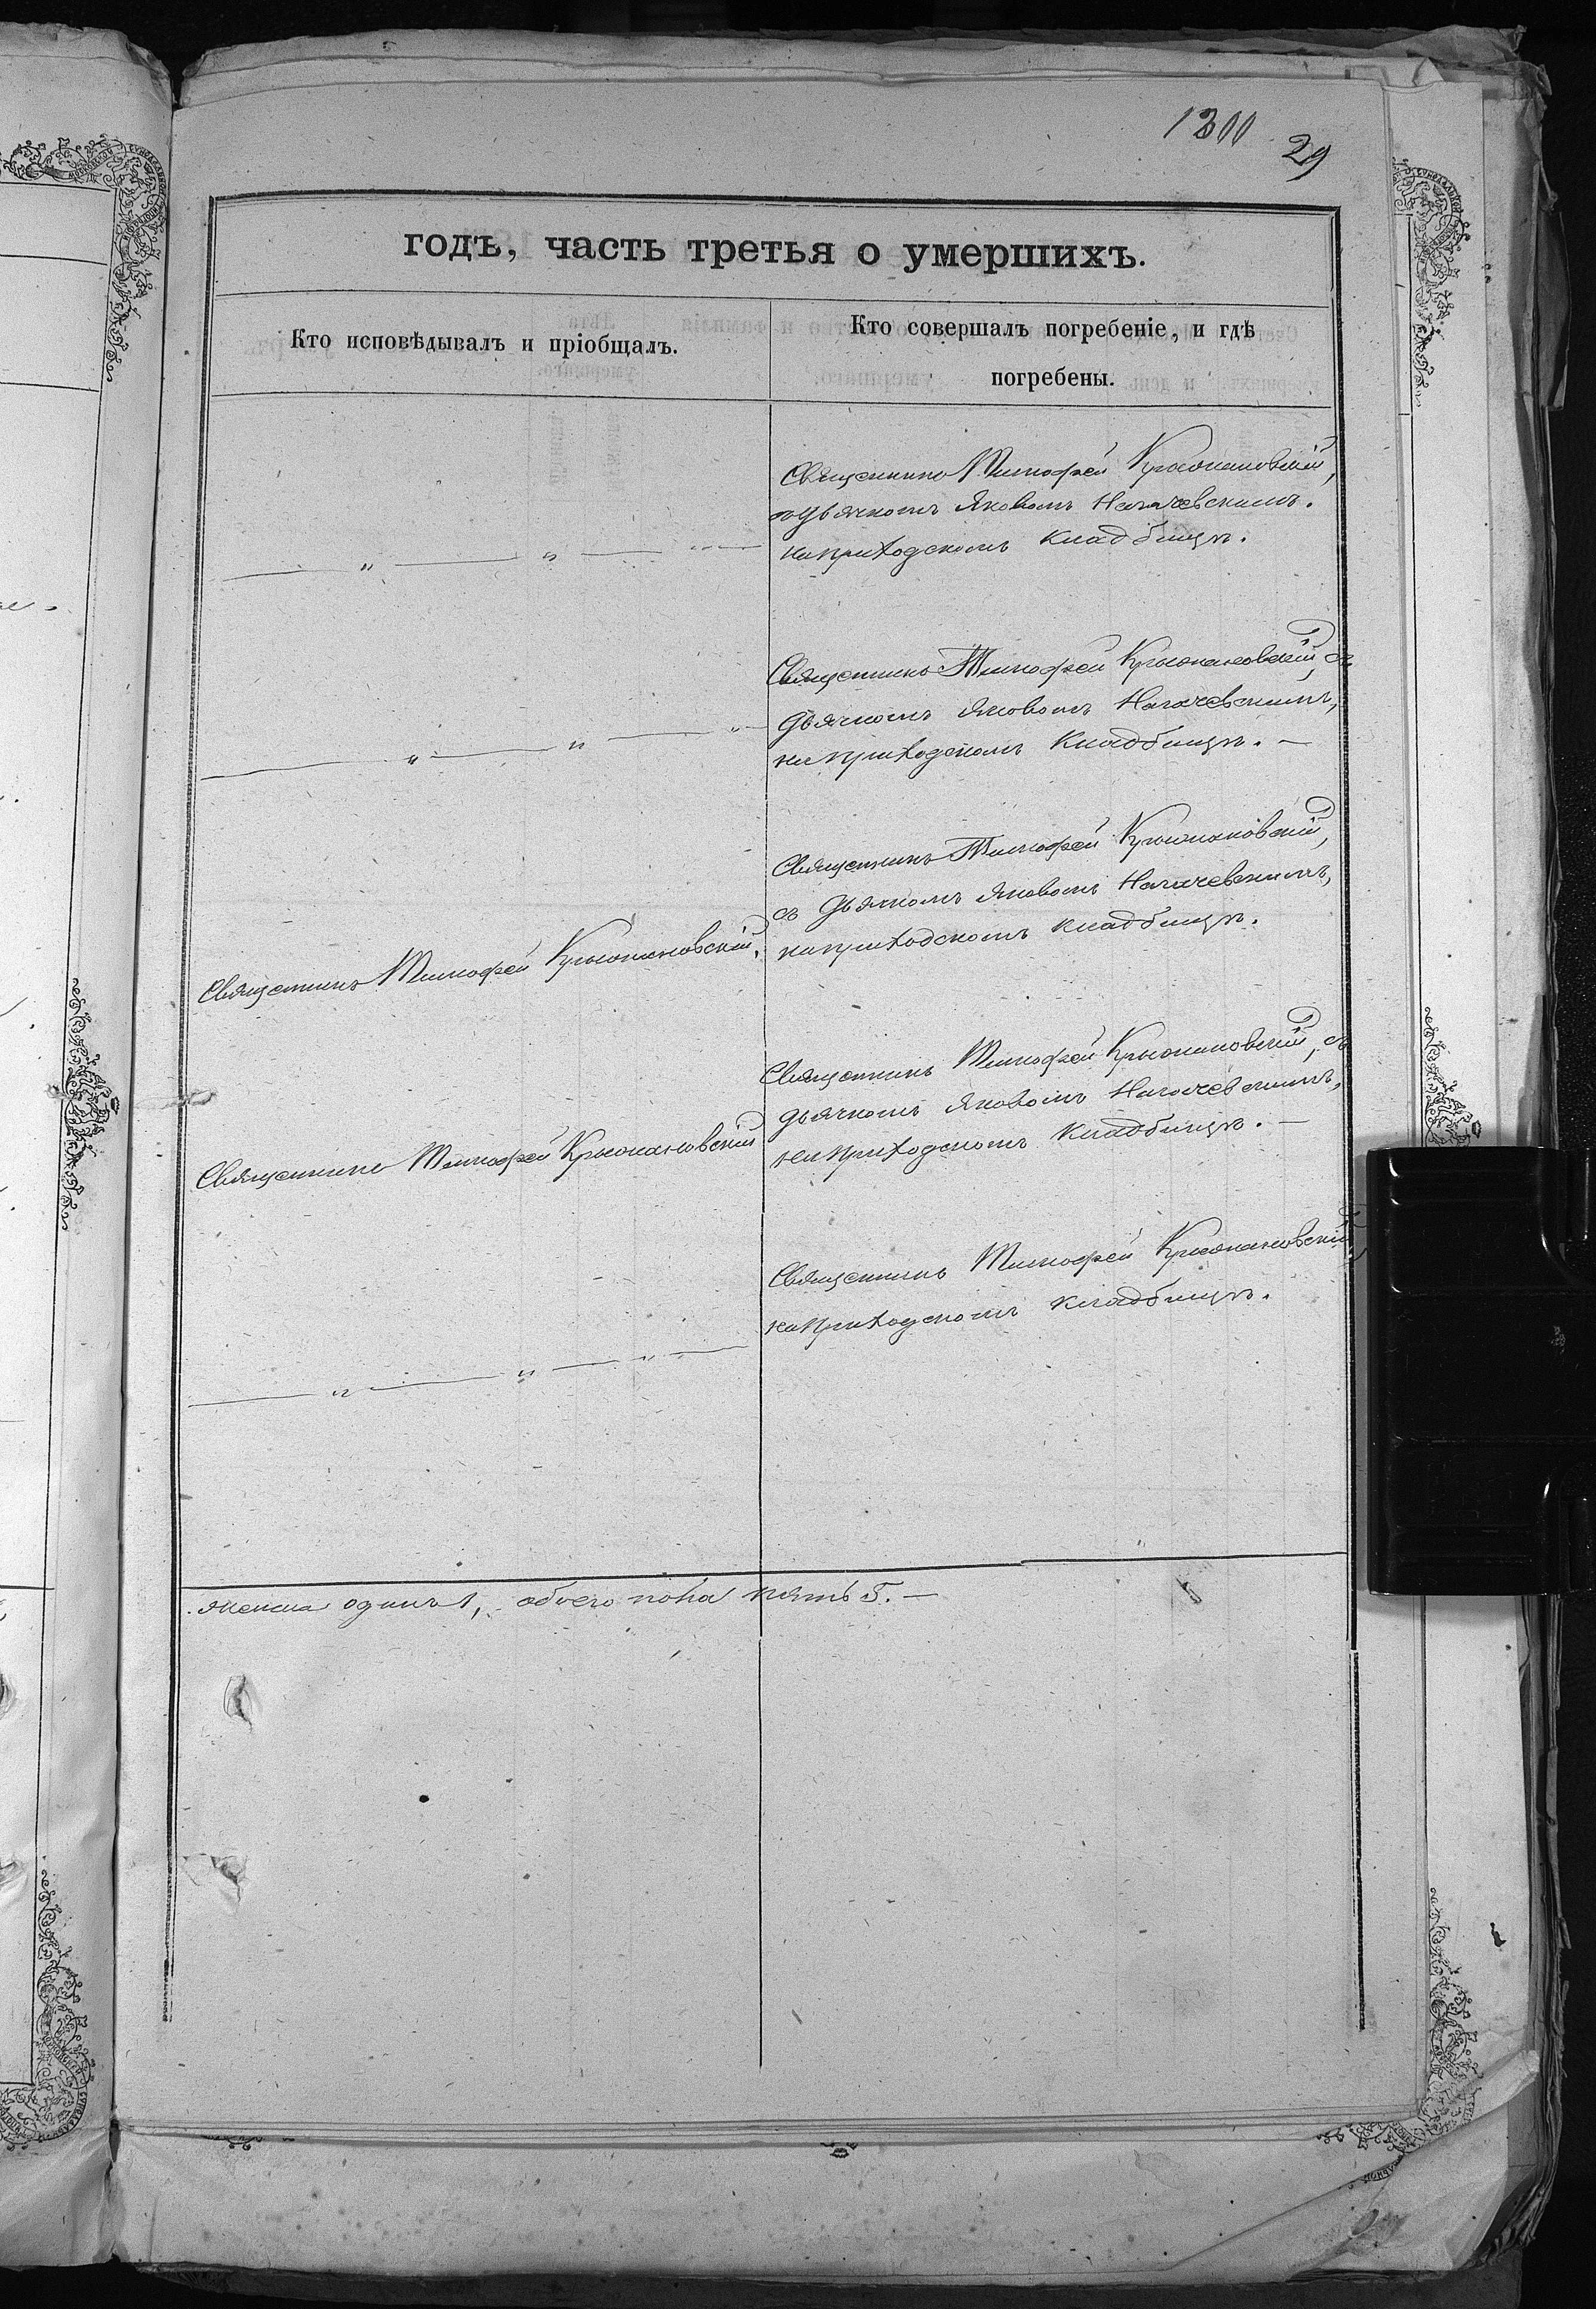 1300
29
годъ, часть третья о умершихъ.
Кто исповѣдывалъ и пріобщалъ.
Кто совершалъ погребеніе, и гдѣ
погребены.
Священникъ Тимофей Крыжановскій,
съ дьячкомъ Яковомъ Нагачевскимъ.
на приходскомъ кладбищѣ.
Священникъ Тимофей Крыжановскій, съ
дьячкомъ Яковомъ Нагачевскимъ,
на приходскомъ кладбищѣ. —
Священникъ Тимофей Крыжановскій,
съ дьячкомъ Яковомъ Нагачевскимъ,
на приходскомъ кладбищѣ.
Священникъ Тимофей Крыжановскій,
Священникъ Тимофей Крыжановскій, съ
дьячкомъ Яковомъ Нагачевскимъ,
на приходскомъ кладбищѣ. —
Священникъ Тимофей Крыжановскій
Священникъ Тимофей Крыжановскій,
на приходскомъ кладбищѣ.
женска одинъ 1, обоего пола пять 5. —